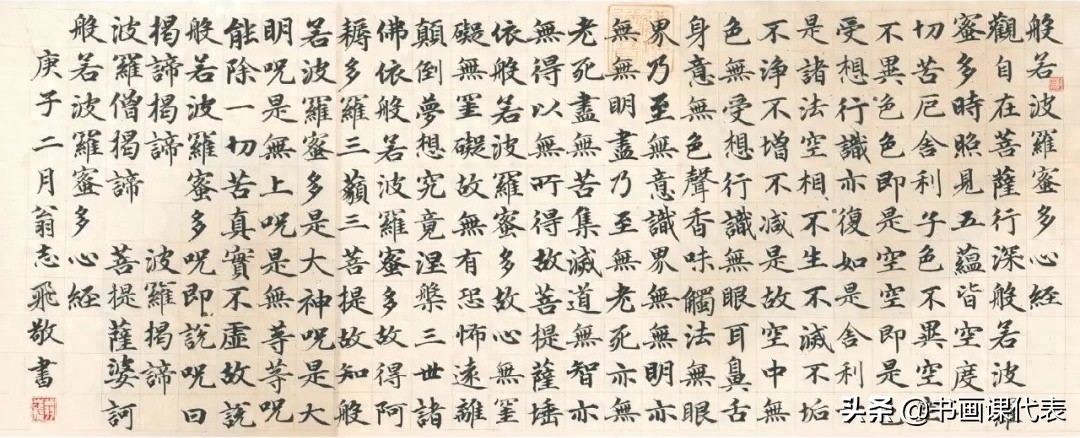 般若波羅蜜多心經
觀自在菩薩行深般若波羅
蜜多時照見五蘊皆空度
切苦厄舍利子色不異空
不異色色即是空空即是色
受想行識亦復如是舍利子
是諸法空相不生不滅不垢
不淨不增不減是故空中無
色無受想行識無眼耳鼻舌
身意無色聲香味觸法無眼
界乃至無意識界無無明亦
無無明盡乃至無老死亦無
老死盡無苦集滅道無智亦
無得以無所得故菩提薩埵
依般若波羅蜜多故心無罣
礙無罣礙故無有恐怖遠離
顛倒夢想究竟涅槃三世諸
佛依般若波羅蜜多故得阿
耨多羅三藐三菩提故知般
若波羅蜜多是大神呪是大
明呪是無上呪是無等等呪
能除一切苦真實不虛故說
般若波羅蜜多呪即說呪曰
揭諦揭諦 波羅揭諦
波羅僧揭諦 菩提薩婆訶
般若波羅蜜多心經
庚子二月翁志飛敬書
头条 @书画课代表